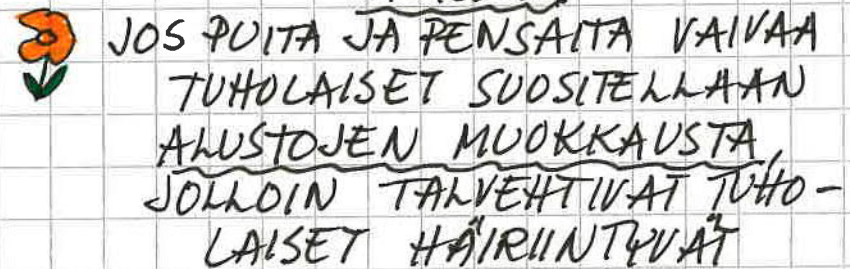 JOS PUITA JA PENSAITA VAIVAA
TUHOLAISET SUOSITELLAAN
ALUSTOJEN MUOKKAUSTA,
JOLLOIN TALVEHTIVAT TUHO-
LAISET HÄIRIINTYVÄT